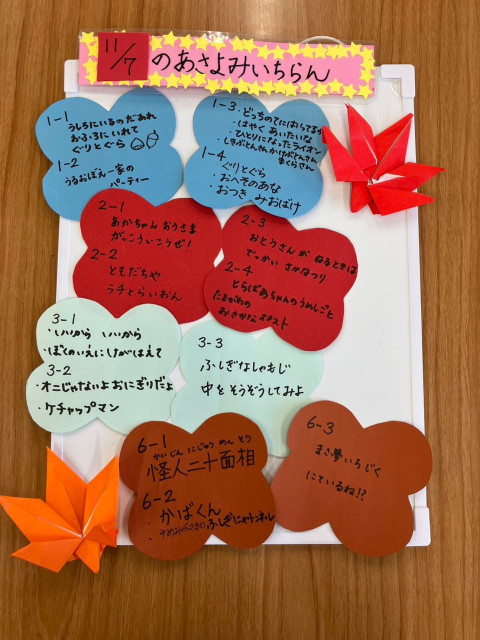 11/7
のあさよみいちらん
1-1
うしろにいるのだあれ
おふろにいれて
ぐりとぐら
1-2
うるおぼえ一家の
パーティー
1-3
・どっちのてにはいってるか
・はやく あいたいな
・ひとりになったライオン
1-4
ぐりとぐら
・おへそのあな
・おつき みおばけ
2-1
あかちゃん おうさま
がっこういこうぜ!
2-2
ともだちや
ラチとらいおん
2-3
おとうさんが ねるときは
でっかい さかなつり
2-4
とらばあちゃんのうめしごと
たまがわの
おさかなポスト
3-1
・いいから いいから
・ぼくのいえにしがはえて
3-2
・オニじゃないよおにぎりだよ
・ケチャップマン
3-3
ふしぎなしゃもじ
中をそうぞうしてみよ
6-1
かいじん にじゅう めん そう
怪人二十面相
6-2
・かばくん
ふしぎにゃトンネル
6-3
まさ夢いちじく
にているね!?